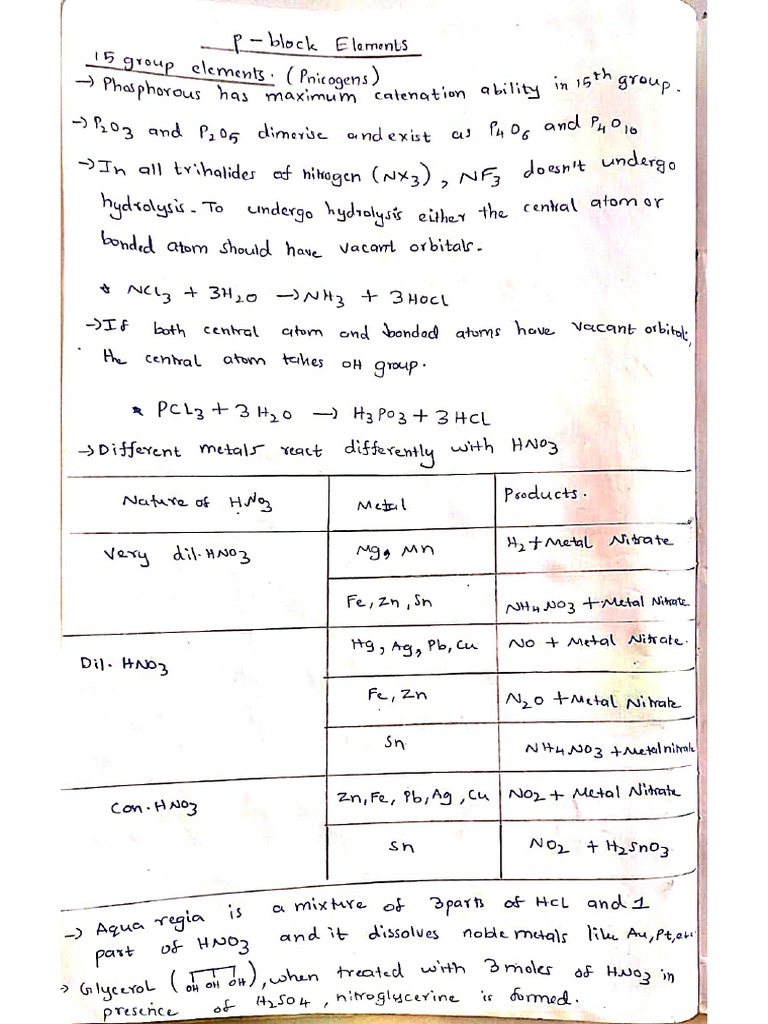 P-block Elements
15 group elements. (Pnicogens)
→ Phosphorous has maximum catenation ability in 15th group.
→ P2O3 and P2O5 dimerise and exist as P4O6 and P4O10
→ In all trihalides of nitrogen (NX3), NF3 doesn't undergo
hydrolysis. To undergo hydrolysis either the central atom or
bonded atom should have vacant orbitals.
* NCl3 + 3H2O → NH3 + 3HOCl
→ If both central atom and bonded atoms have vacant orbitals,
the central atom takes OH group.
* PCl3 + 3H2O → H3PO3 + 3HCl
→ Different metals react differently with HNO3
Nature of HNO3 Metal Products.
Very dil. HNO3 Mg, Mn H2 + Metal Nitrate
Fe, Zn, Sn NH4NO3 + Metal Nitrate
Dil. HNO3 Hg, Ag, Pb, Cu NO + Metal Nitrate.
Fe, Zn N2O + Metal Nitrate
Sn NH4NO3 + Metal nitrate
Con. HNO3 Zn, Fe, Pb, Ag, Cu NO2 + Metal Nitrate
Sn NO2 + H2SnO3
→ Aqua regia is a mixture of 3parts of HCl and 1
part of HNO3 and it dissolves noble metals like Au, Pt, etc.
→ Glycerol (OH OH OH), when treated with 3 moles of HNO3 in
presence of H2SO4, nitroglycerine is formed.